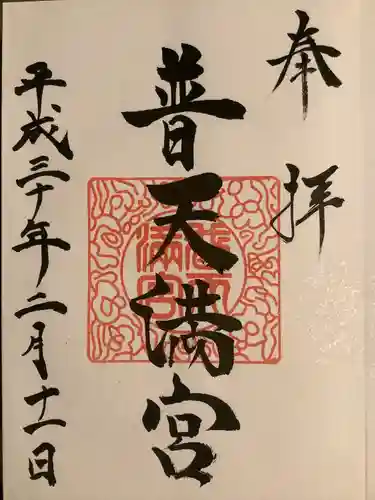 奉拝
普天満宮
平成三十年二月十一日